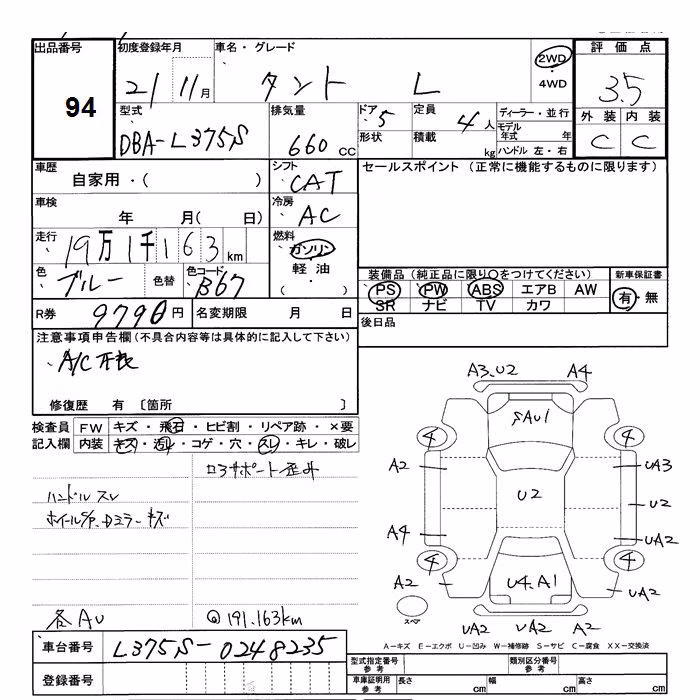 出品番号 初度登録年月 車名・グレード 評価点
94 21 11月 タント L 2WD 4WD 3.5
型式 排気量 ドア 定員 ディーラー・並行 外装 内装
DBA-L375S 660 CC 5 4人 モデル年式 年 C C
形状 積載 kg ハンドル 左・右
車歴 シフト セールスポイント (正常に機能するものに限ります)
自家用・( ) CAT
車検 冷房
年 月( 日) AC
走行 燃料
19万1千163km ガソリン
軽油
( ・ )
色 色替 色コード 装備品(純正品に限り○をつけてください) 新車保証書
ブルー B67 PS PW ABS エアB AW 有・無
SR ナビ TV カワ
R券 9790円 名変期限 月 日 後日品
注意事項申告欄(不具合内容等は具体的に記入して下さい)
A/C不良
修復歴 有 〔箇所 〕
検査員 FW キズ・飛石・ヒビ割・リペア跡・×要
記入欄 内装 キズ・汚レ・コゲ・穴・スレ・キレ・破レ
コアサポート歪み
ハンドルスレ
ホイールS/P.Dミラーキズ
各AU @191.163km
A3.U2 A4
SAU1
4 4
A2 UA3
U2 U2
A4 UA2
4 4
A2 U4.A1 UA2
スペア
UA2 UA2 A2
A－キズ E－エクボ U－凹み W－補修跡 S－サビ C－腐食 XX－交換済
車台番号 L375S-0248235
登録番号
型式指定番号 参考 類別区分番号 参考
車庫証明用 参考 長さ cm 幅 cm 高さ cm